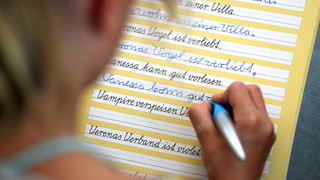 einer Villa.
wohnt in einer Villa.
erenas Vogel ist verliebt.
Verenas Vogel ist verliebt.
Vanessa kann gut vorlesen.
Vanessa kann gut
Vampire verspeisen Vi
Verenas Verband ist violett